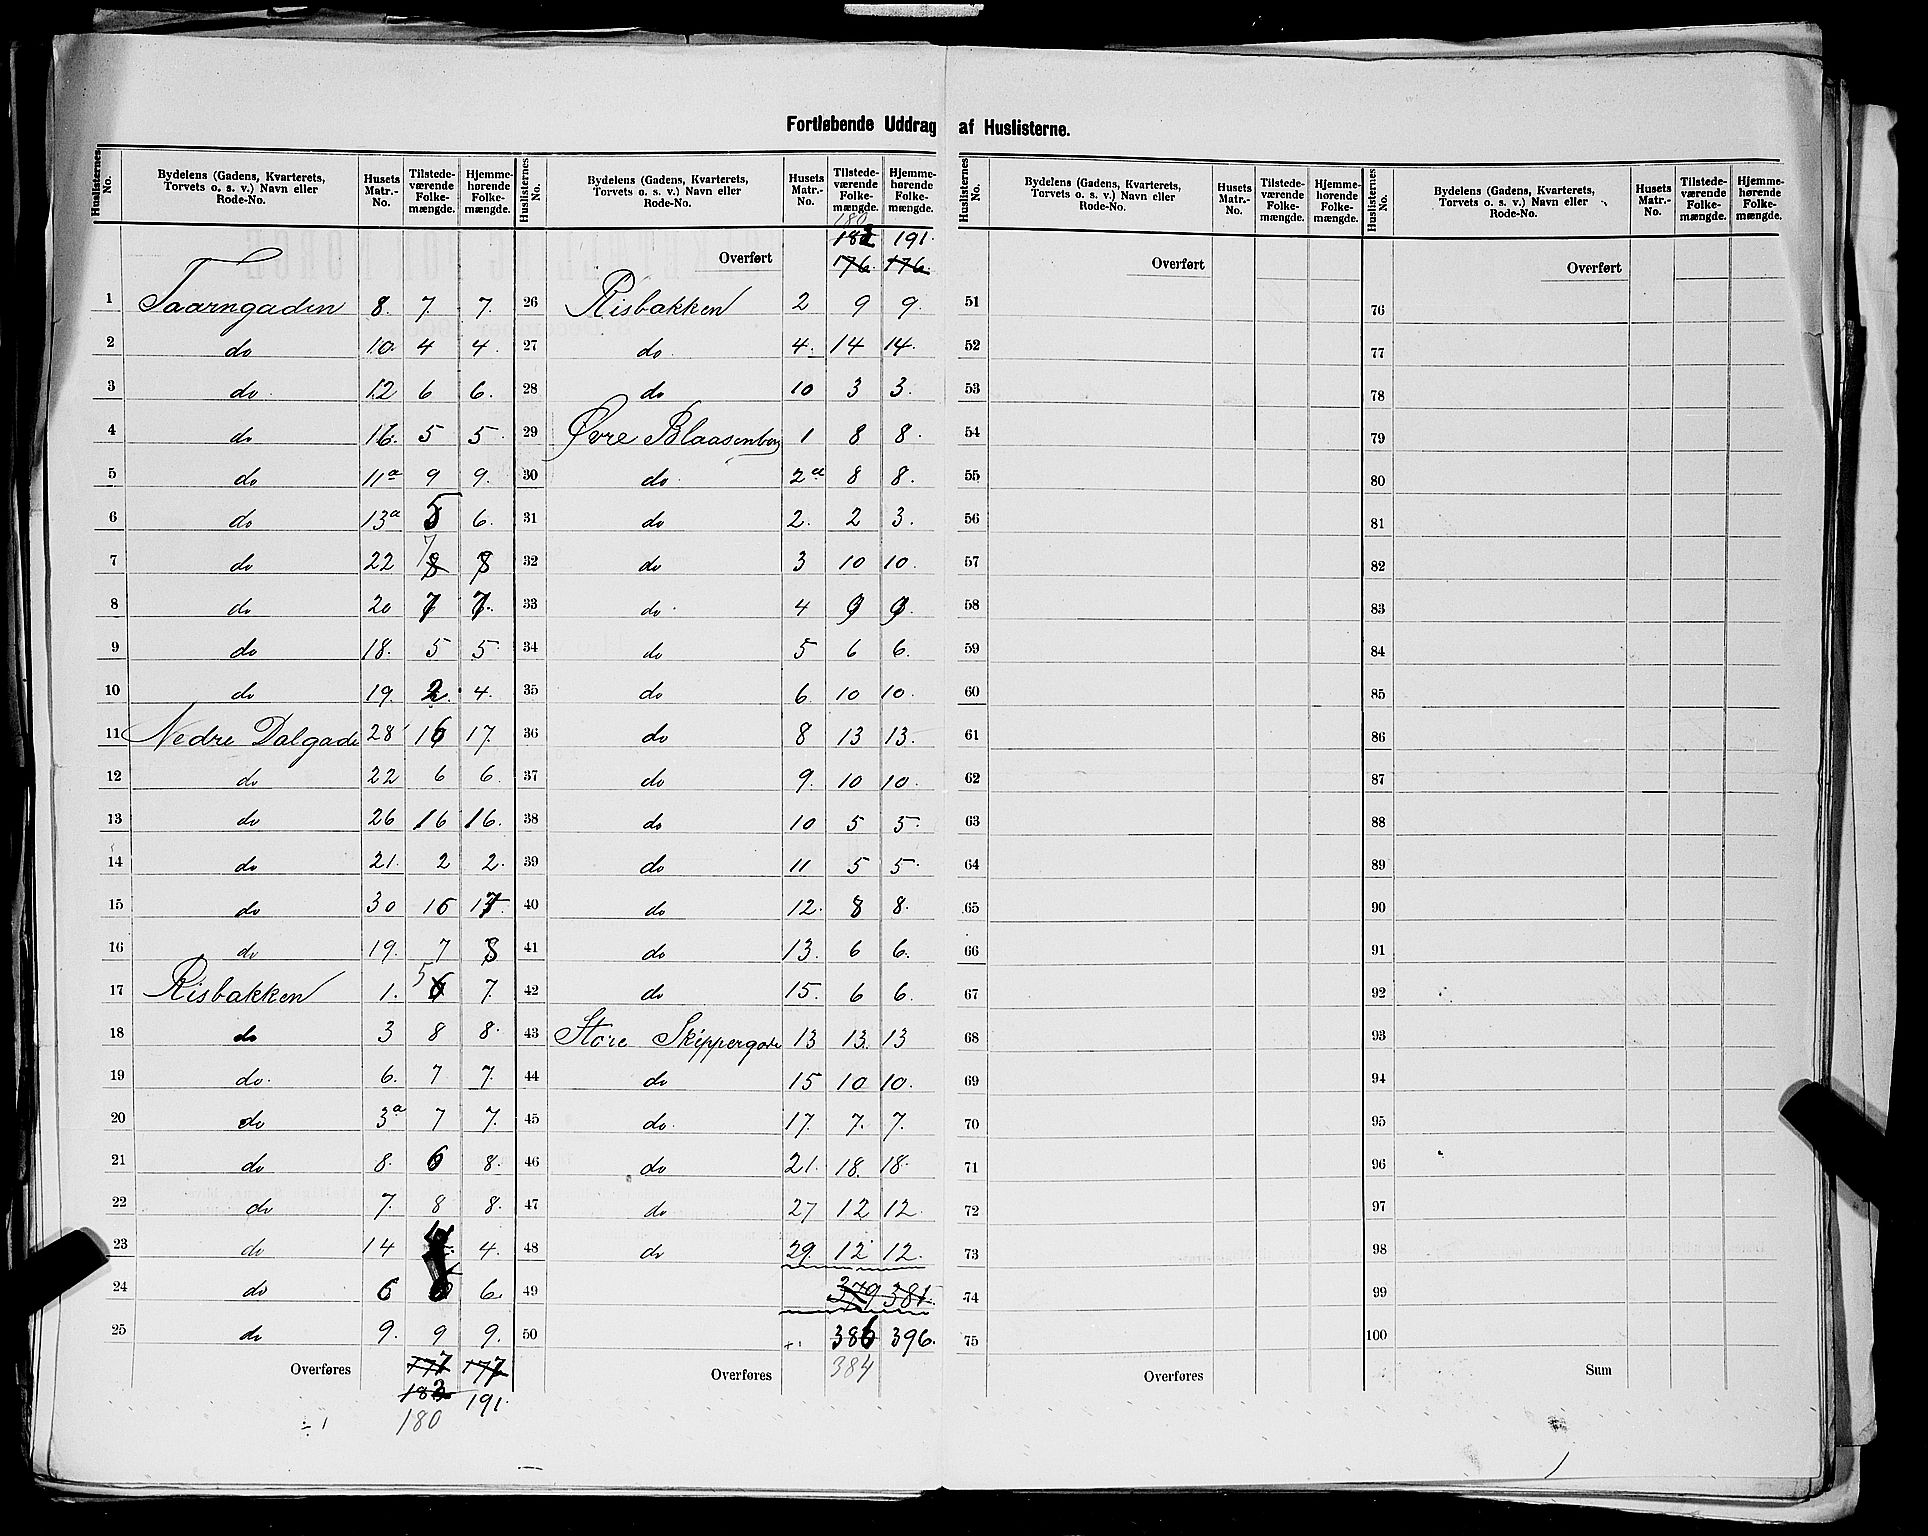 Fortløbende Uddrag af Huslisterne.
Huslisternes No. Bydelens (Gadens, Kvarterets, Torvets o. s. v.) Navn eller Rode-No. Husets Matr.-No. Tilstede-værende Folke-mængde. Hjemme-hørende Folke-mængde.
1 Taarngaden 8. 7. 7.
2 do 10. 4 4.
3 do 12 6 6.
4 do 16. 5 5.
5 do 11a 9 9.
6 do 13a 5 6.
7 do 22 7 8 8
8 do 20 7 7.
9 do 18. 5 5
10 do 19. 2. 4.
11 Nedre Dalgade 28 16 17
12 do 22 6 6.
13 do 26 16 16.
14 do 21. 2 2.
15 do 30 16 17.
16 do 19. 7 8
17 Risbakken 1. 5 6 7.
18 do 3 8 8.
19 do. 6. 7 7.
20 do 3a 7 7.
21 do 8. 6 8.
22 do 7. 8 8.
23 do 14 4.
24 do 6 6.
25 do 9. 9 9.
Overføres 177 177
183 191.
180
÷ 1
Huslisternes No. Bydelens (Gadens, Kvarterets, Torvets o. s. v.) Navn eller Rode-No. Husets Matr.-No. Tilstede-værende Folke-mængde. Hjemme-hørende Folke-mængde.
180
183 191.
Overført 176. 176.
26 Risbakken 2 9 9.
27 do. 4. 14 14.
28 do 10 3 3.
29 Øvre Blaasenborg 1 8 8.
30 do. 2a 8 8.
31 do 2. 2 3.
32 do 3 10 10.
33 do. 4 9 9.
34 do 5 6 6.
35 do 6 10 10.
36 do 8 13 13.
37 do 9. 10 10.
38 do 10 5 5.
39 do 11 5 5.
40 do 12. 8 8.
41 do 13. 6 6.
42 do 15. 6 6.
43 Store Skippergade 13 13. 13
44 do 15 10 10.
45 do. 17. 7. 7.
46 do 21. 18. 18.
47 do 27 12 12.
48 do 29. 12 12.
49 379 381.
50 386 396.
Overføres 384
Huslisternes No. Bydelens (Gadens, Kvarterets, Torvets o. s. v.) Navn eller Rode-No. Husets Matr.-No. Tilstede-værende Folke-mængde. Hjemme-hørende Folke-mængde.
Overført
51
52
53
54
55
56
57
58
59
60
61
62
63
64
65
66
67
68
69
70
71
72
73
74
75
Overføres
Huslisternes No. Bydelens (Gadens, Kvarterets, Torvets o. s. v.) Navn eller Rode-No. Husets Matr.-No. Tilstede-værende Folke-mængde. Hjemme-hørende Folke-mængde.
Overført
76
77
78
79
80
81
82
83
84
85
86
87
88
89
90
91
92
93
94
95
96
97
98
99
100
Sum